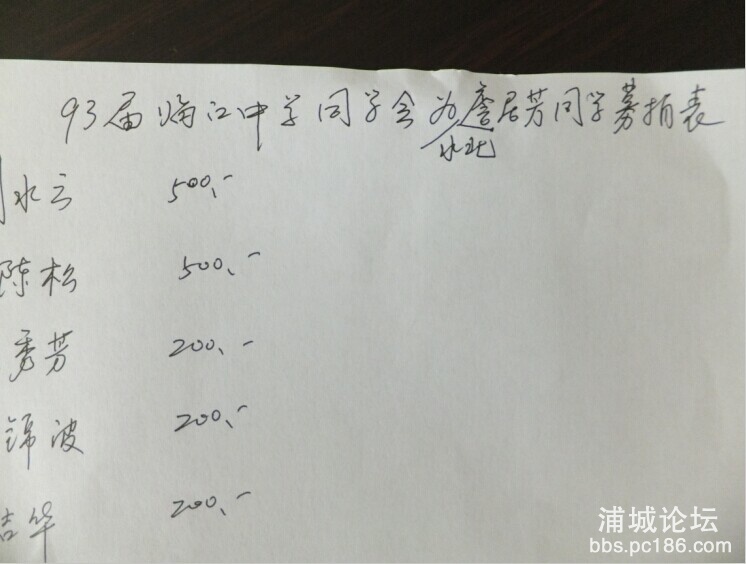 93届临江中学同学会为詹居芳同学募捐表
水北
水云 500.-
陈松 500.-
秀芳 200.-
锦波 200.-
吉华 200.-
浦城论坛
bbs.pc186.com